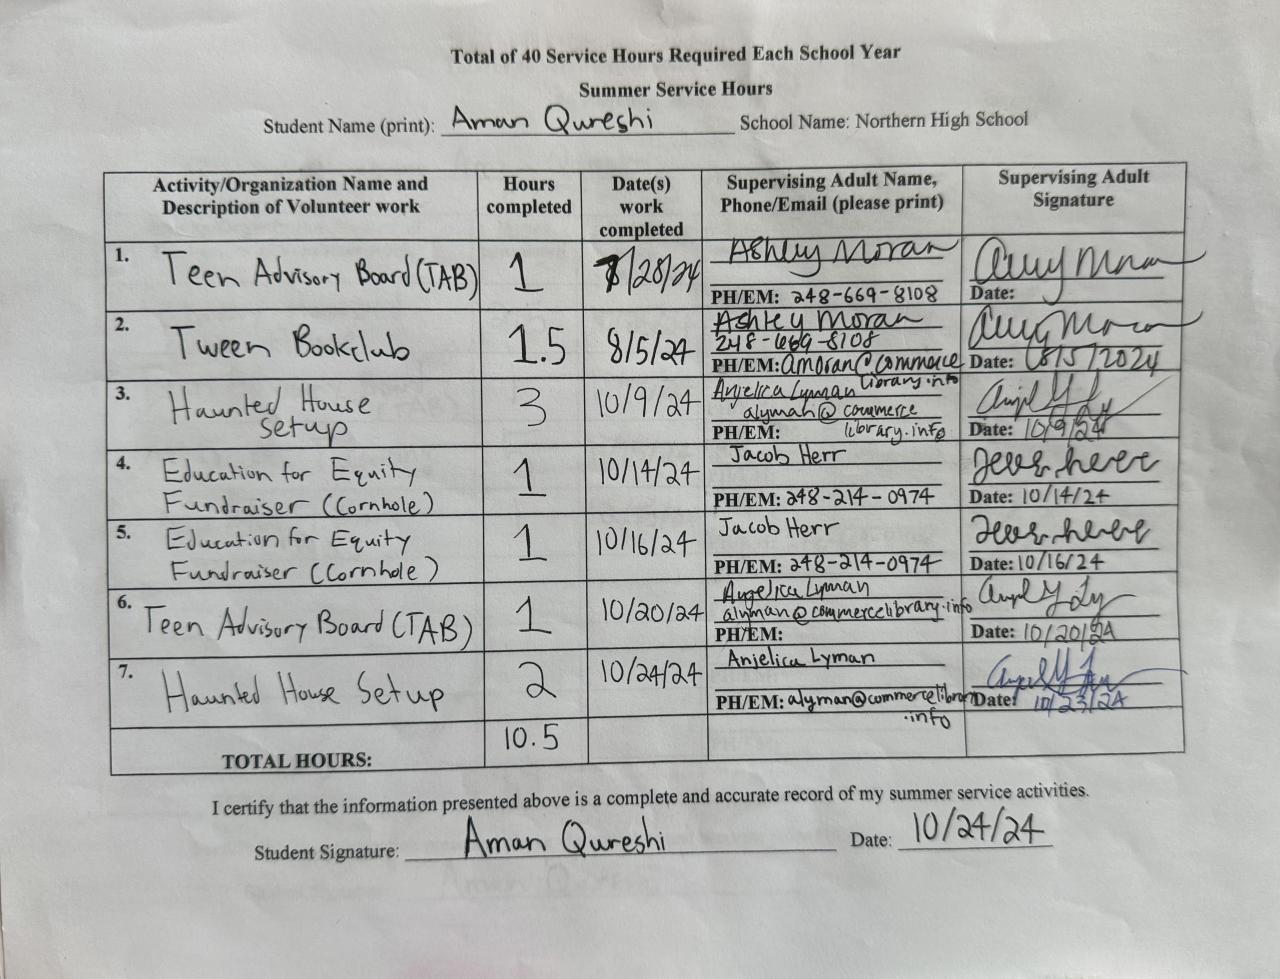 Total of 40 Service Hours Required Each School Year
Summer Service Hours
Student Name (print): Aman Qureshi School Name: Northern High School
Activity/Organization Name and Description of Volunteer work
Hours completed
Date(s) work completed
Supervising Adult Name, Phone/Email (please print)
Supervising Adult Signature
1. Teen Advisory Board (TAB)
1
/28/24
Ashley Moran
PH/EM: 248-669-8108
Date:
2. Tween Bookclub
1.5
8/5/24
Ashley Moran
248-669-8108
PH/EM: amoran@commerce
library.info
Date: 8/5/2024
3. Haunted House
setup
3
10/9/24
Anjelica Lyman
alyman@commerce
PH/EM: library.info
Date: 10/9/24
4. Education for Equity
Fundraiser (Cornhole)
1
10/14/24
Jacob Herr
PH/EM: 248-214-0974
Date: 10/14/24
5. Education for Equity
Fundraiser (Cornhole)
1
10/16/24
Jacob Herr
PH/EM: 248-214-0974
Date: 10/16/24
6. Teen Advisory Board (TAB)
1
10/20/24
Angelica Lyman
alyman@commercelibrary.info
PH/EM:
Date: 10/20/24
7. Haunted House Setup
2
10/24/24
Anjelica Lyman
PH/EM: alyman@commercelibrary
.info
Date: 10/23/24
TOTAL HOURS:
10.5
I certify that the information presented above is a complete and accurate record of my summer service activities.
Student Signature: Aman Qureshi Date: 10/24/24